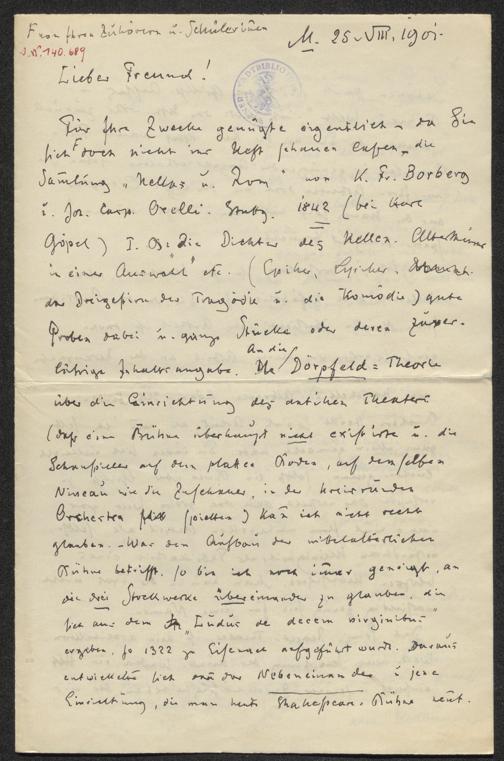 Fron Ihren Zuhörern u. Schülerinen
J. N. 140.689
M. 25. VIII. 1901.
Lieber Freund!
Für Ihre Zwecke genügte eigentlich – da Sie
sich doch nicht ins Heft schauen lassen – die
Samlung „Hellas u. Rom" von K. Fr. Borberg
u. Joh. Casp. Orelli. Stuttg. 1842 (bei Karl
Göpel) I. Bd: die Dichter des Hellen. Alterthums
in einer Auswahl" etc. (Epiker, Lyriker,
das Dreigestirn der Tragödie u. die Komödie) gute
Proben dabei u. ganze Stücke oder deren zuver-
lässige Inhaltsangabe. An die Dörpfeld = Theorie
über die Einrichtung des antiken Theaters
(daß eine Bühne überhaupt nicht existirte u. die
Schauspieler auf dem platten Boden, auf demselben
Niveau wie die Zuschauer, in der kreisrunden
Orchestra spielten) kan ich nicht recht
glauben. – Was den Aufbau der mittelalterlichen
Bühne betrifft, so bin ich noch imer geneigt, an
die drei Stockwerke übereinander zu glauben, die
sich aus dem „Ludus de decem virginibus"
ergeben, so 1322 zu Eisenach aufgeführt wurde. Daraus
entwickelte sich erst das Nebeneinander u jene
Einrichtung, die man heute Shakespeare-Bühne nent.